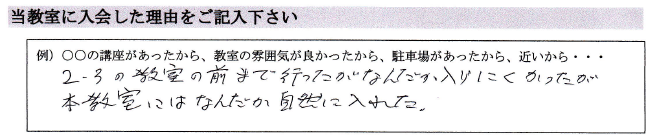 当教室に入会した理由をご記入下さい
例）〇〇の講座があったから、教室の雰囲気が良かったから、駐車場があったから、近いから・・・
2-3の教室の前まで行ったがなんだか入りにくかったが
本教室にはなんだか自然に入れた。